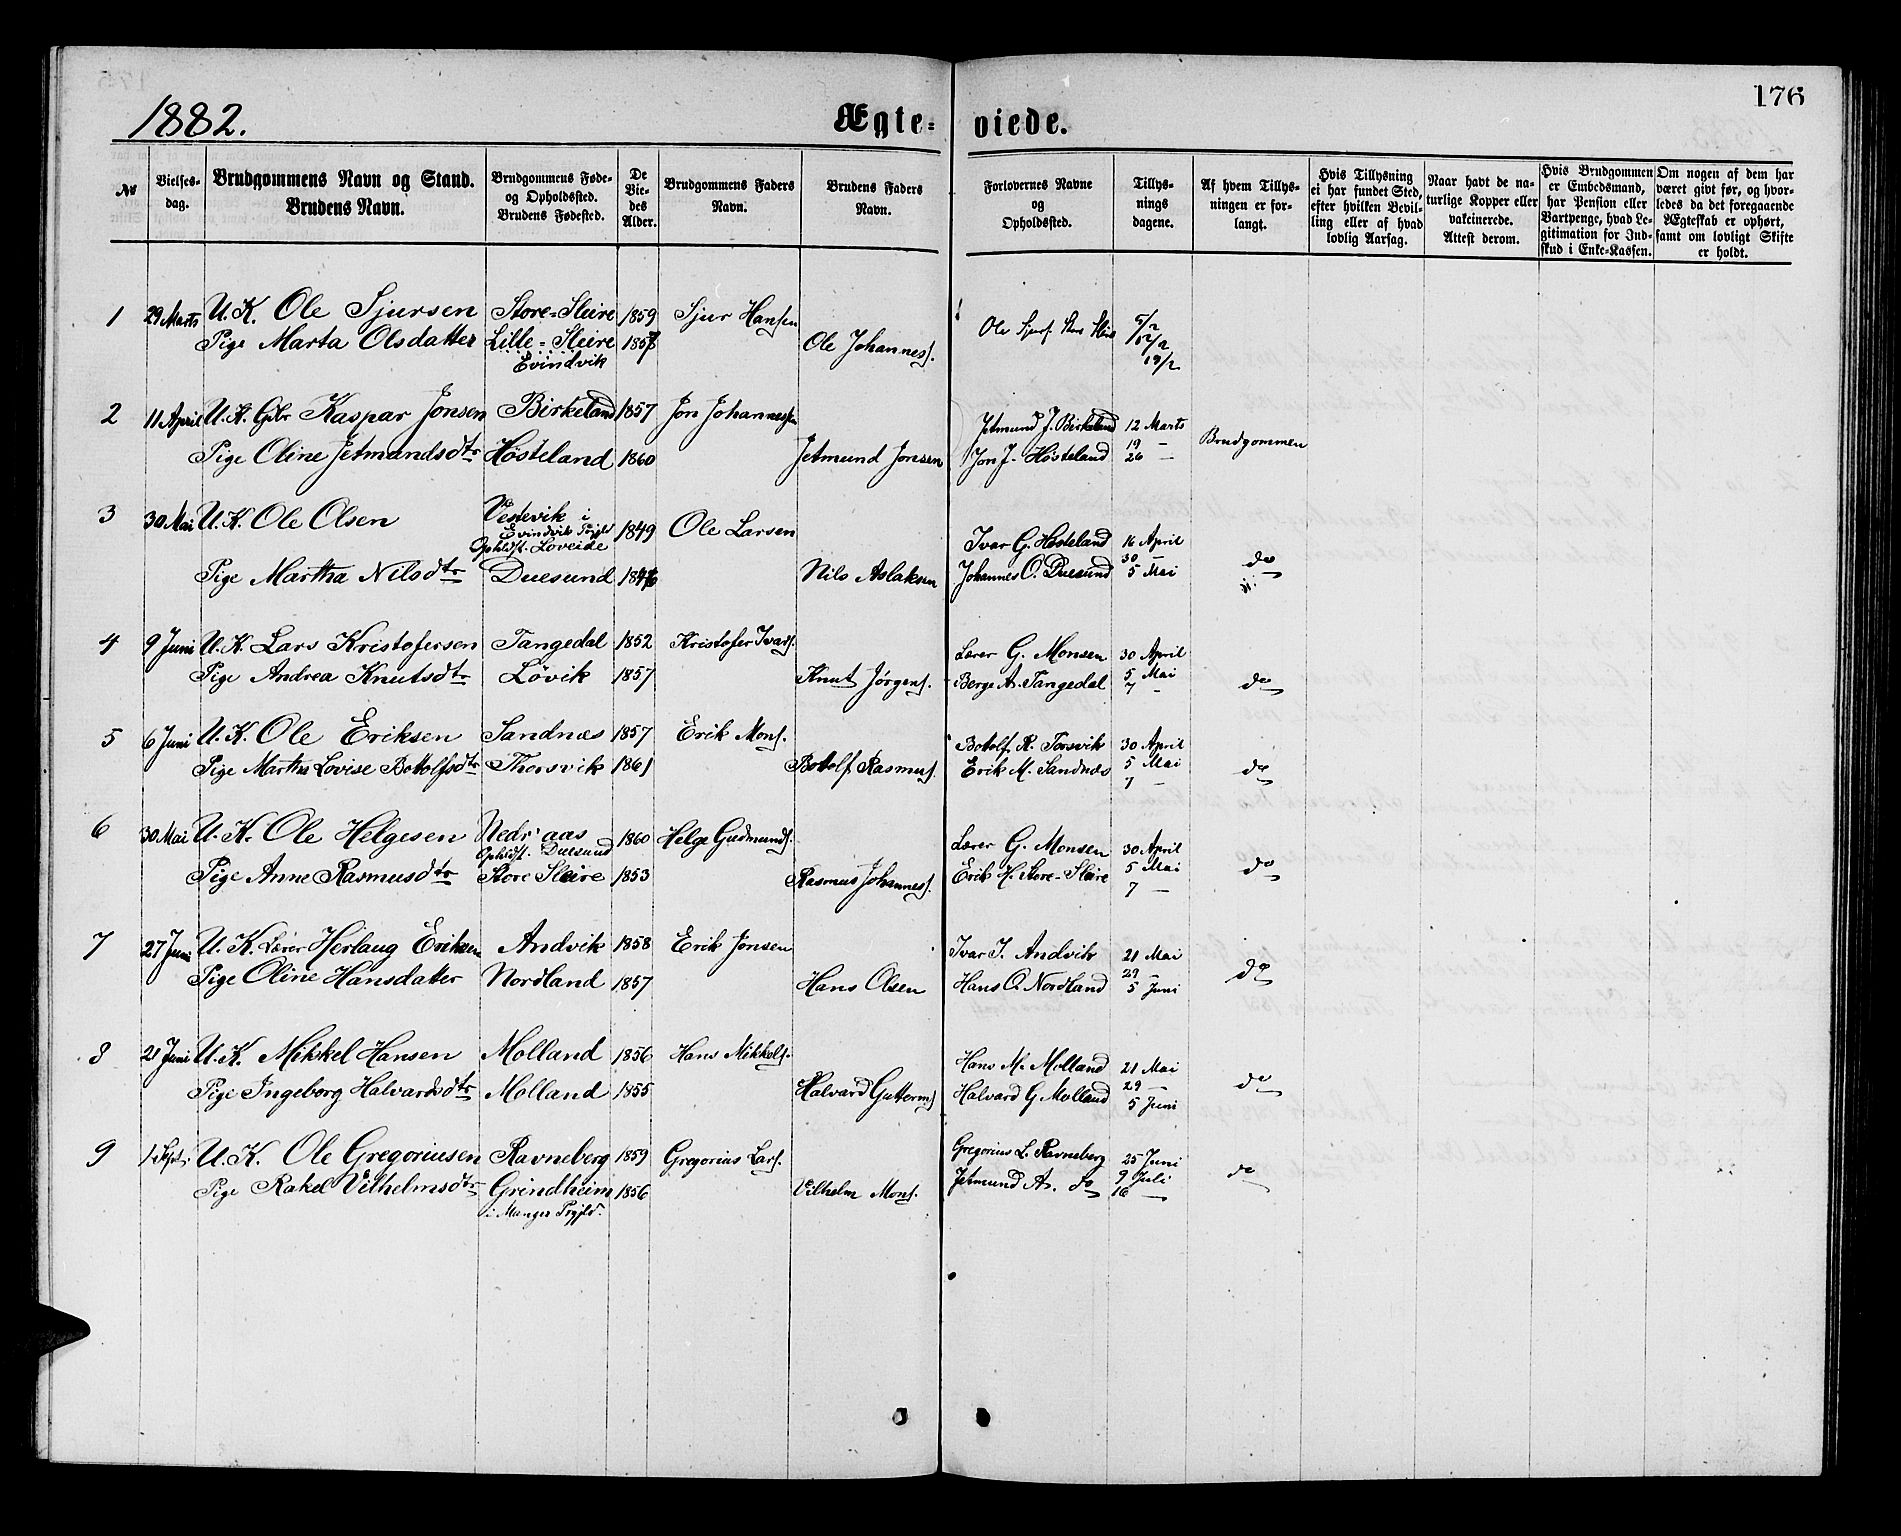 176
1882.
Ægte- viede.
No
Vielses-dag.
Brudgommens Navn og Stand. Brudens Navn.
Brudgommens Føde- og Opholdssted. Brudens Fødested.
De Vie-des Alder.
Brudgommens Faders Navn.
Brudens Faders Navn.
Forlovernes Navne og Opholdssted.
Tillys-nings dagene.
Af hvem Tillys-ningen er for-langt.
Hvis Tillysning ei har fundet Sted, efter hvilken Bevil-ling eller af hvad lovlig Aarsag.
Naar havt de na-turlige Kopper eller vakcinerede. Attest derom.
Hvis Brudgommen er Embedsmand, har Pension eller Vartpenge, hvad Le-gitimation for Ind-skud i Enke-Kassen.
Om nogen af dem har været givt før, og hvor-ledes da det foregaaende Ægteskab er ophørt, samt om lovligt Skifte er holdt.
1 29 Marts U. K. Ole Sjursen Store-Sleire 1859 Sjur Hansen Ole Sjurs. Store Sleire 5/2
Pige Marta Olsdatter Lille-Sleire 1857 Ole Johannes. 12/2
Evindvik 19/2
2 11 April U. K. Gbr Kaspar Jonsen Birkeland 1857 Jon Johannessen Jetmund J. Birkeland 12 Marts
Pige Oline Jetmundsdtr Høsteland 1860 Jetmund Jonsen Jon J. Høsteland 19 — Brudgommen
26 —
3 30 Mai U. K. Ole Olsen Vestevik i 1849 Ole Larsen
Evindvik Pgjld
Opholdst. Loveide Ivar G. Høsteland 16 April
Pige Martha Nilsdtr Duesund 1846 Nils Aslaksen Johannes O. Duesund 30 — do
5 Mai
4 9 Juni U. K. Lars Kristofersen Tangedal 1852 Kristofer Ivars. Lærer G. Monsen 30 April
Pige Andrea Knutsdtr Løvik 1857 Knut Jørgens. Berge A. Tangedal 5 Mai do
7 —
5 6 Juni U. K. Ole Eriksen Sandnæs 1857 Erik Mons. Bottolf R. Torsvik 30 April
Pige Martha Lovise Bottolfsdtr Thorsvik 1861 Bottolf Rasmus. Erik M. Sandnæs 5 Mai do
7 —
6 30 Mai U. K. Ole Helgesen Nedr' aas 1860 Helge Gudmunds. Lærer G. Monsen 30 April
Opholdst. Duesund
Pige Anne Rasmusdtr Store Sleire 1853 Rasmus Johannes. Erik H. Store-Sleire 5 Mai do
7 —
7 27 Juni U. K. Lærer Herlaug Eriksen Andvik 1858 Erik Jonsen Ivar I. Andvik 21 Mai
Pige Oline Hansdatter Nordland 1857 Hans Olsen Hans O. Nordland 29 — do
5 Juni
8 21 Juni U. K. Mikkel Hansen Molland 1856 Hans Mikkels. Hans M. Molland 21 Mai
Pige Ingeborg Halvardsdtr Molland 1855 Halvard Guttorms. Halvard G Molland 29 — do
5 Juni
9 1 Sept. U. K. Ole Gregoriusen Ravneberg 1859 Gregorius Lars. Gregorius L. Ravneberg 25 Juni
Pige Rakel Vilhelmsdtr Grindheim 1856 Vilhelm Mons. Jetmund A. do 9 Juli do
i Manger Prgjld. 16 —